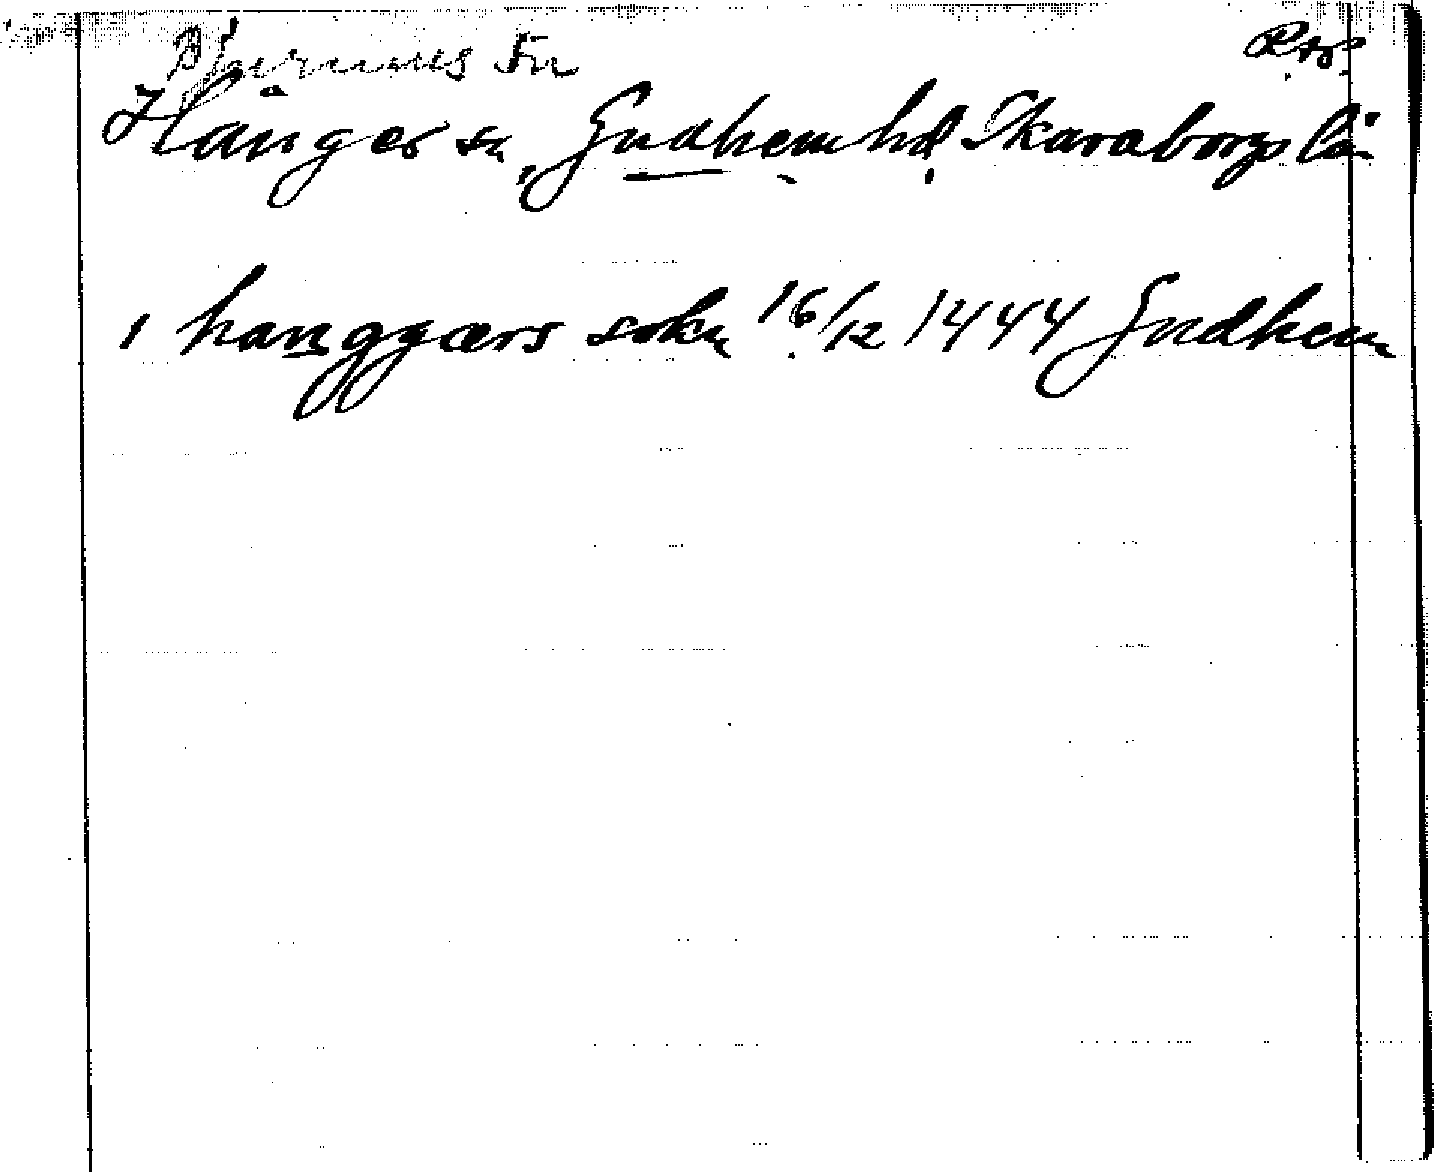 Bjurums sn Rto.
Hånger sn, Gudhem hd Skaraborgs län
i hanggærs sokn 16/12 1444 Gudhem